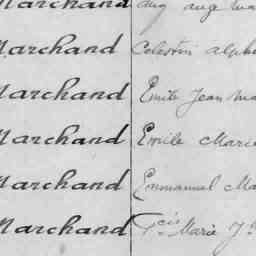 Marchand Aug Aug Ma
Marchand Celestin Alph
Marchand Emile Jean Ma
Marchand Emile Marie
Marchand Emmanuel Ma
Marchand Fcis Marie J